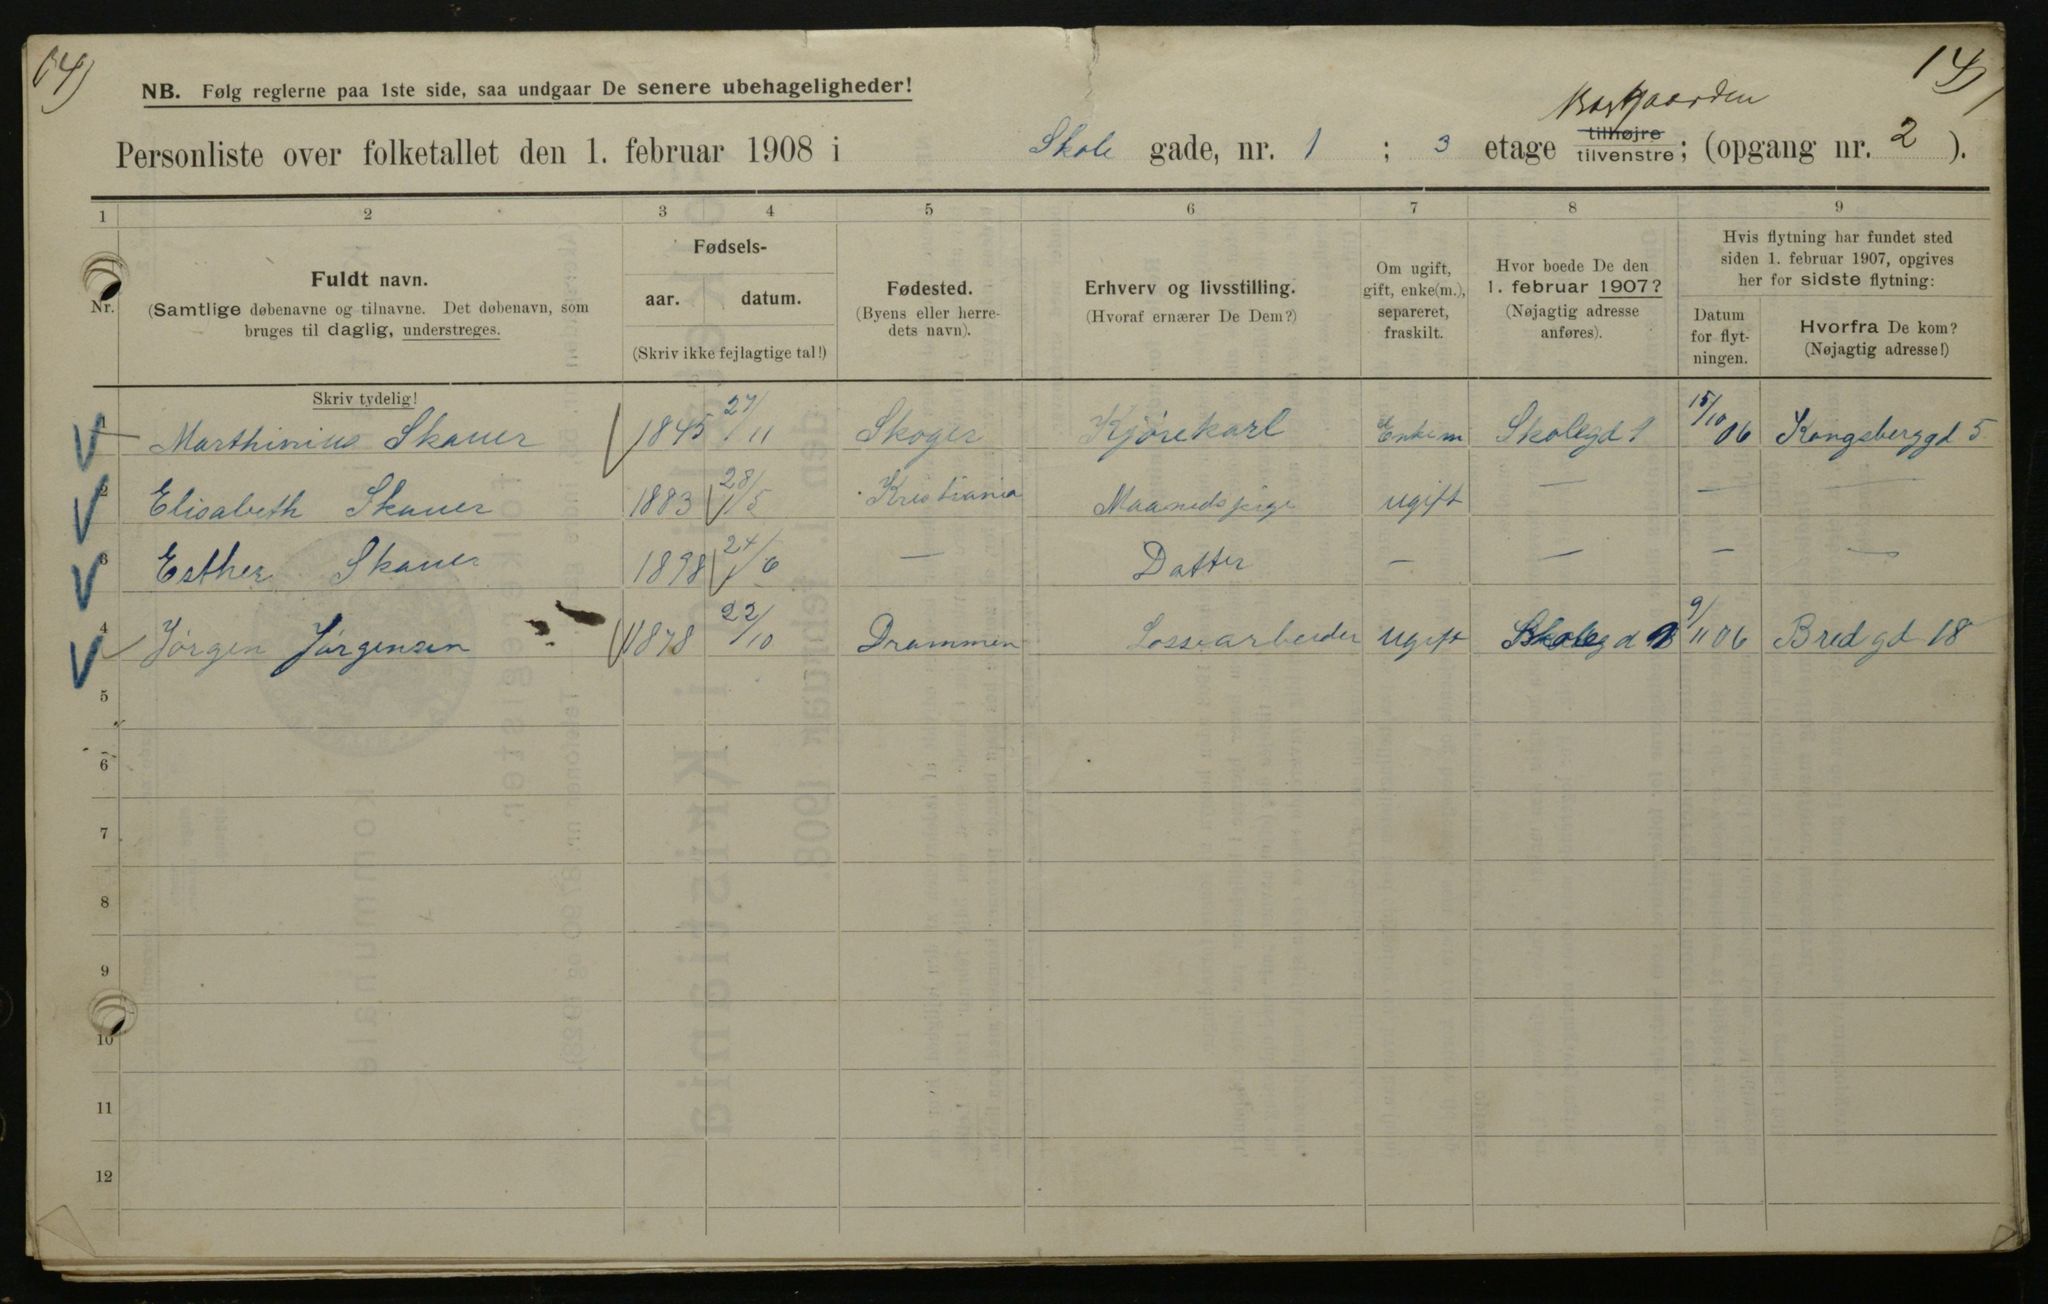 14)
14)
NB. Følg reglerne paa 1ste side, saa undgaar De senere ubehageligheder!
Bakgaarden
Personliste over folketallet den 1. februar 1908 i Skole gade, nr. 1 ; 3 etage tilhøjre tilvenstre; (opgang nr. 2 ).
1 2 3 4 5 6 7 8 9
Nr.
Fuldt navn.
(Samtlige døbenavne og tilnavne. Det døbenavn, som
bruges til daglig, understreges.
Skriv tydelig!
Fødsels-
aar. datum.
(Skriv ikke fejlagtige tal!)
Fødested.
(Byens eller herre-
dets navn).
Erhverv og livsstilling.
(Hvoraf ernærer De Dem?)
Om ugift,
gift, enke(m.),
separeret,
fraskilt.
Hvor boede De den
1. februar 1907?
(Nøjagtig adresse
anføres).
Hvis flytning har fundet sted
siden 1. februar 1907, opgives
her for sidste flytning:
Datum
for flyt-
ningen.
Hvorfra De kom?
(Nøjagtig adresse!)
1 Marthinius Skauer 1845 27/11 Skoger Kjørekarl Enkem Skolegd 1 15/10 06 Kongsberggd 5
2 Elisabeth Skauer 1883 28/5 Kristiania Maanedspige ugift — — —
3 Esther Skauer 1898 24/6 — Datter — — — —
4 Jørgen Jørgensen 1878 22/10 Drammen Lossearbeider ugift Skolegd 9/11 06 Bredgd 18
5
6
7
8
9
10
11
12